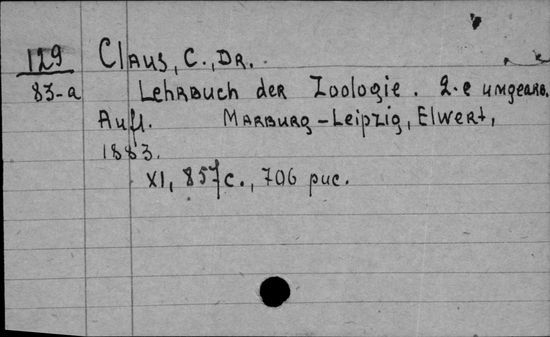 129 Claus, C., Dr.
83-a Lehrbuch der Zoologie. 2.e umgearb.
Aufl. Marburg-Leipzig, Elwert,
1883.
XI, 857 c., 706 рис.